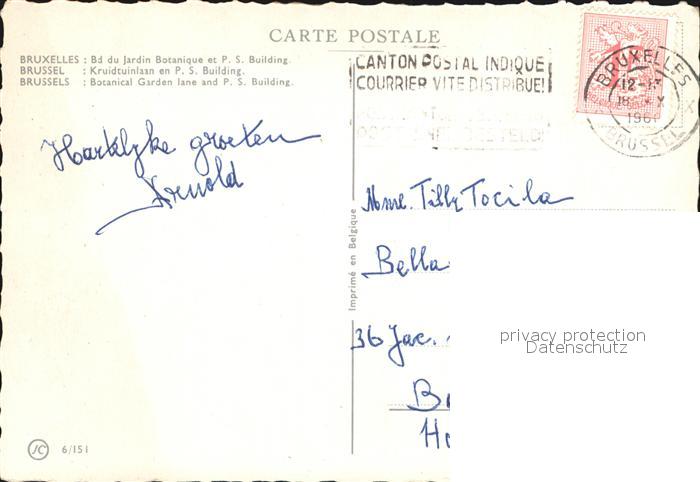 CARTE POSTALE
BRUXELLES : Bd du Jardin Botanique et P. S. Building.
BRUSSEL : Kruidtuinlaan en P. S. Building.
BRUSSELS : Botanical Garden lane and P. S. Building.
CANTON POSTAL INDIQUE
COURRIER VITE DISTRIBUE!
BRUXELLES
12-
18 X
1961
BRUSSEL
Hartelyke groeten
Arnold
Imprimé en Belgique
Mme. Tilly Tocila
Bella
36 Jac.
privacy protection
Datenschutz
JC 6/151